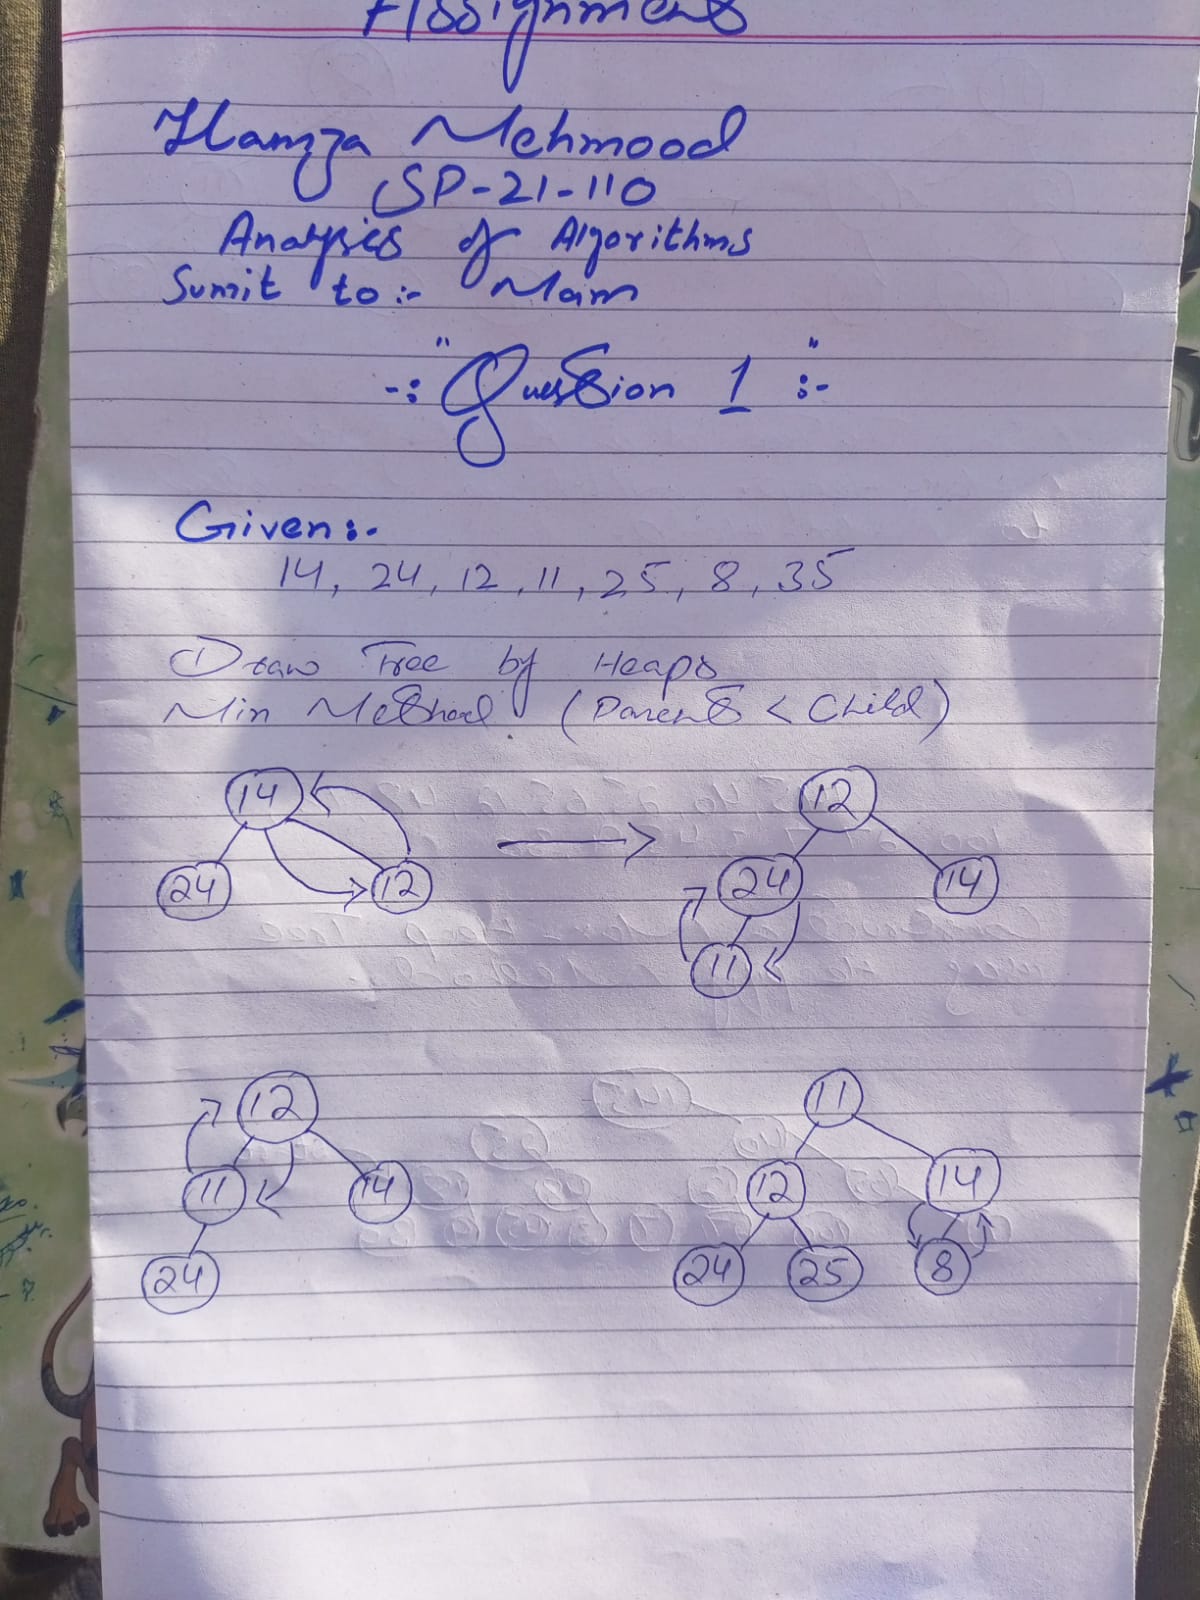 Assignment
Hamza Mehmood
SP-21-110
Analysis of Algorithms
Sumit to:- Mam
-: "Question 1" :-
Given:-
14, 24, 12, 11, 25, 8, 35
Draw Tree by Heaps
Min Method (Parents < Child)
14
24 12
12
24 14
11
12
11 14
24
11
12 14
24 25 8